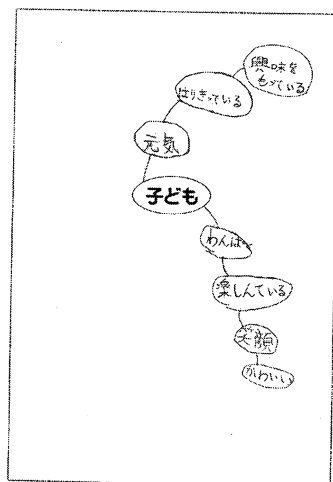 興味を
もっている
はりきっている
元気
子ども
わんぱく
楽しんでいる
笑顔
かわいい